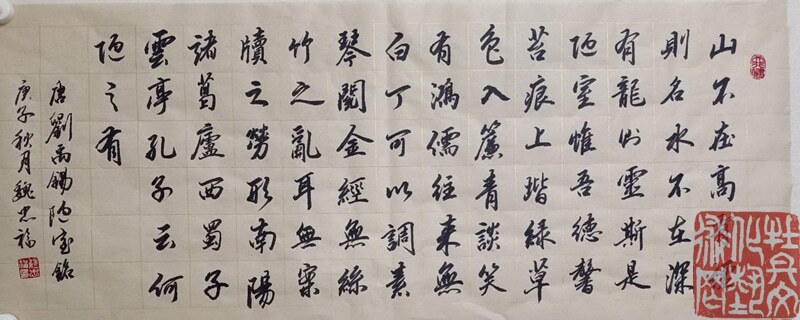 山不在高
則名水不在深
有龍則靈斯是
陋室惟吾德馨
苔痕上階綠草
色入簾青談笑
有鴻儒往來無
白丁可以調素
琴閱金經無絲
竹之亂耳無案
牘之勞形南陽
諸葛廬西蜀子
雲亭孔子云何
陋之有
唐劉禹錫陋室銘
庚子秋月魏忠福